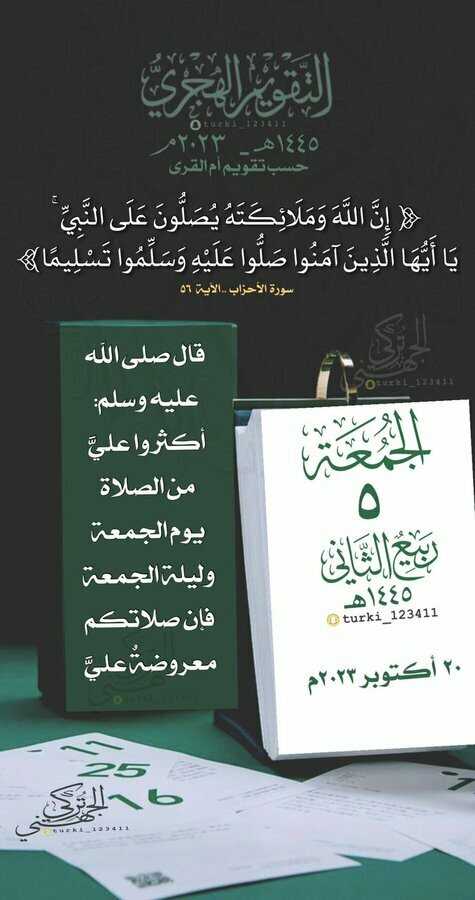 التَّقويم الهِجري
turki_123411
١٤٤٥هـ _ ٢٠٢٣م
حسب تقويم أم القرى
﴿ إِنَّ اللَّهَ وَمَلَائِكَتَهُ يُصَلُّونَ عَلَى النَّبِيِّ ۚ
يَا أَيُّهَا الَّذِينَ آمَنُوا صَلُّوا عَلَيْهِ وَسَلِّمُوا تَسْلِيمًا ﴾
سورة الأحزاب ..الآية ٥٦
تركي الجهني
turki_123411
قال صلى الله
عليه وسلم:
أكثروا عليَّ
من الصلاة
يوم الجمعة
وليلة الجمعة
فإن صلاتكم
معروضةٌ عليَّ
الجُمُعَة
٥
رَبيعُ الثَّاني
١٤٤٥هـ
turki_123411
٢٠ أكتوبر ٢٠٢٣م
11
25
16
تركي الجهني
turki_123411